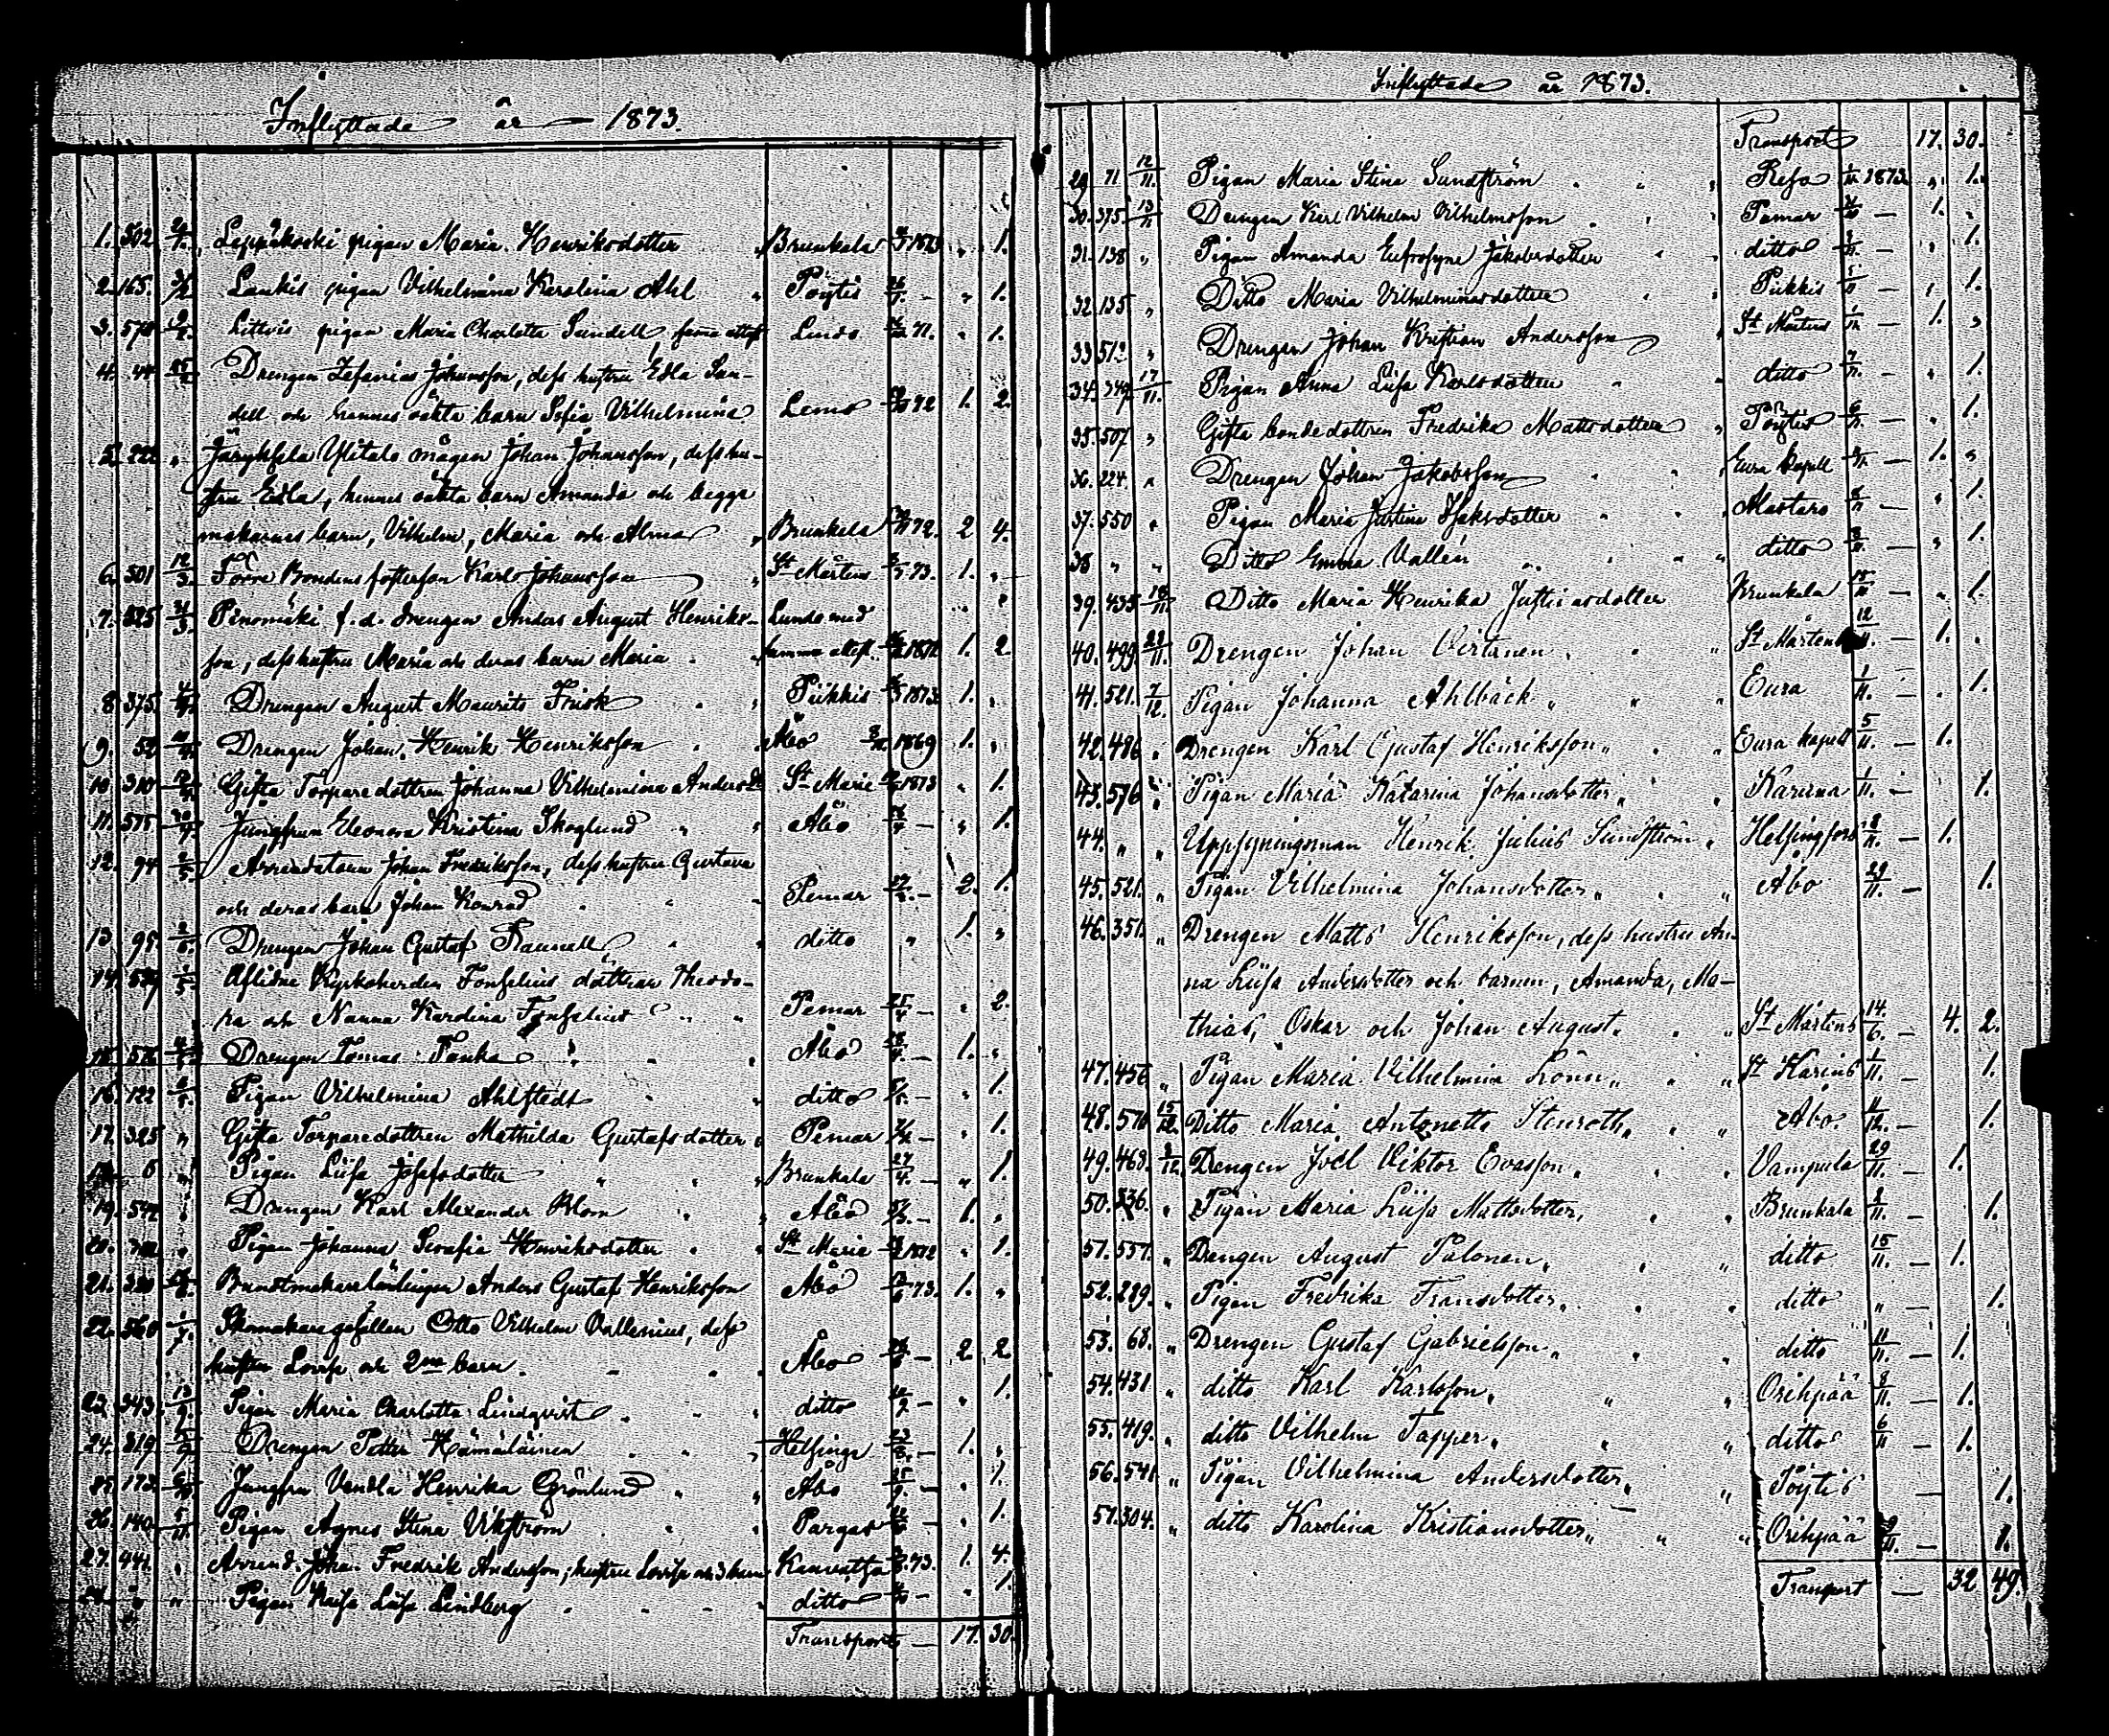 Inflyttade år 1873.
1. 502. Leppäkoski pigan Maria Henriksdotter " Brunkala 1873 " 1.
2. 165. Laukis pigan Vilhelmina Karolina Ahl " Pöytis — " 1.
3. 570 pigan Maria Charlotta Sundell, Lundo 71. " 1.
4. 44 Drengen Zefanias Johansson, dess hustru Edla Sun-
dell och hennes oäkta barn Sofia Vilhelmina Lemo 72 1. 2.
5. 222 " Ylitalo mågen Johan Johansson, dess hu-
stru Edla, hennes oäkta barn Amanda och begge
makarnes barn, Vilhelm, Maria och Alma " Brunkala 72. 2 4.
6. 501 12/3. Bondens fosterson Karl Johansson " St Mårtens 73. 1. "
7. 325 Pinomäki f.d. drengen Anders August Henriks- Lundo med
son, dess hustru Maria och deras barn Maria . samma attest. 1. 2
8 375. Drengen August Maurits Frisk . " Piikkis 1873 1. "
9. 52. Drengen Johan Henrik Henriksson . Åbo 1869 1. "
10 310 Gifta Torparedottren Johanna Vilhelmina Anders d. St Marie 1873 " 1.
11. 575 Jungfrun Eleonora Kristina Skoglund " " Åbo — " 1.
12. 94 Arrendatorn Johan Fredriksson, dess hustru Gustava
och deras barn Johan Konrad . . " Pemar — 2. 1.
13. 95. Drengen Johan Gustaf " ditto " 1. "
14. Aflidne Kyrkoherden Fonselius döttrar Theodo-
ra och Nanna Karolina Fonselius " " Pemar 25/4 — " 2.
15. 576 Drengen Tomas . Åbo — 1. "
16. 122 Pigan Vilhelmina Ahlstedt . " ditto — " 1.
17. 325 " Gifta Torparedottren Mathilda Gustafsdotter " Pemar — " 1.
6 " Pigan Liisa Josefsdotter " " " Brunkala 27/4. — " 1.
19. Drengen Karl Alexander Blom " " Åbo — 1. "
20. " Pigan Johanna Serafia Henriksdotter . " St Marie 1872 " 1.
21. Buntmakarelärlingen Anders Gustaf Henriksson Åbo 73. 1. "
22. 560 Skomakaregesällen Otto Vilhelm Vallenius, dess
hustru Lovisa och 2ne barn. - . . Åbo — 2. 2
23. 343. 13/7. Pigan Maria Charlotta Lindqvist . " ditto — " 1.
24. 319 Drengen Petter Hämäläinen . . " Helsinge — 1. "
173. Jungfru Vendla Henrika Grönlund " " Åbo — " 1.
26. 140 5/11. Pigan Agnes Stina Vikström . . " Pargas — " 1.
27. 441. " Arrend. Johan Fredrik Andersson, hustru Lovisa och 3 barn 73. 1. 4.
28. " " Pigan Liisa Lindberg . . " ditto — " 1.
Transport — 17. 30.
Inflyttade år 1873.
Transport 17. 30.
29. 71 12/11. Pigan Maria Stina Sundström . " " Reso 1873 " 1.
30. 375. 13/11 Drengen Karl Vilhelm Vilhelmsson . . " Pemar — 1. "
31. 138 " Pigan Amanda Eufrosyne Jakobsdotter " " ditto — " 1.
32. 135 " Ditto Maria Vilhelminasdotter . " Piikkis 5/11 — " 1.
33 512 " Drengen Johan Kristian Andersson " St Mårtens — 1. "
34. 349. 17/11. Pigan Anna Liisa Karlsdotter " " ditto 7/11. — " 1.
35. 507 " Gifta bondedottren Fredrika Mattsdotter " Pöytis 6/11. — " 1.
36. 224. " Drengen Johan Jakobsson . . " Eura kapell — 1. "
37. 550 " Pigan Maria Justina Isaksdotter " . " Alastaro 8/11 — " 1.
38 " " Ditto Emma Vallén . . " " ditto 8/11. — " 1.
39. 435 18/11. Ditto Maria Henrika Justinasdotter Brunkala 15/11 — " 1.
40. 499. 22/11. Drengen Johan Virtanen . . " St Mårtens 12/11. — 1. .
41. 521. 7/12. Pigan Johanna Ahlbäck " " " Eura 1/11. — . 1.
42. 486 . Drengen Karl Gustaf Henriksson " . " Eura kapell 5/11. — 1.
43. 576 " Pigan Maria Katarina Johansdotter " . " Karuna 1/11. — 1.
44. " " Uppsyningsman Henrik Julius Sundström " Helsingfors 8/11. — 1.
45. 521. " Pigan Vilhelmina Johansdotter " . " Åbo 29/11. — 1.
46. 351. " Drengen Matts Henriksson, dess hustru An-
na Liisa Andersdotter och barnen, Amanda, Ma-
thias, Oskar och Johan August. . " St Mårtens 14/6. — 4. 2.
47. 456 " Pigan Maria Vilhelmina Lönn " . " St Karins 1/11. — 1.
48. 570 15/12. Ditto Maria Antonette Stenroth " . " Åbo. 11/12. — 1.
49. 468. 2/12. Drengen Joel Viktor Evasson. . " Vampula 29/11. — 1.
50. 336. " Pigan Maria Liisa Mattsdotter, . " Brunkala 2/11. — 1.
51. 551. " Drengen August Palonen, . " ditto 15/11. — 1.
52. 289. " Pigan Fredrika Fransdotter, . " ditto " — 1.
53. 68. " Drengen Gustaf Gabrielsson " . " ditto 11/11. — 1.
54. 431. " ditto Karl Karlsson, " " Orihpää 8/11. — 1.
55. 419. " ditto Vilhelm Tapper, . " ditto 6/11 — 1.
56. 541. " Pigan Vilhelmina Andersdotter, " Pöytis — 1.
57. 304. " ditto Karolina Kristiansdotter, " " Orihpää 9/11. — 1.
Transport — 32 49.